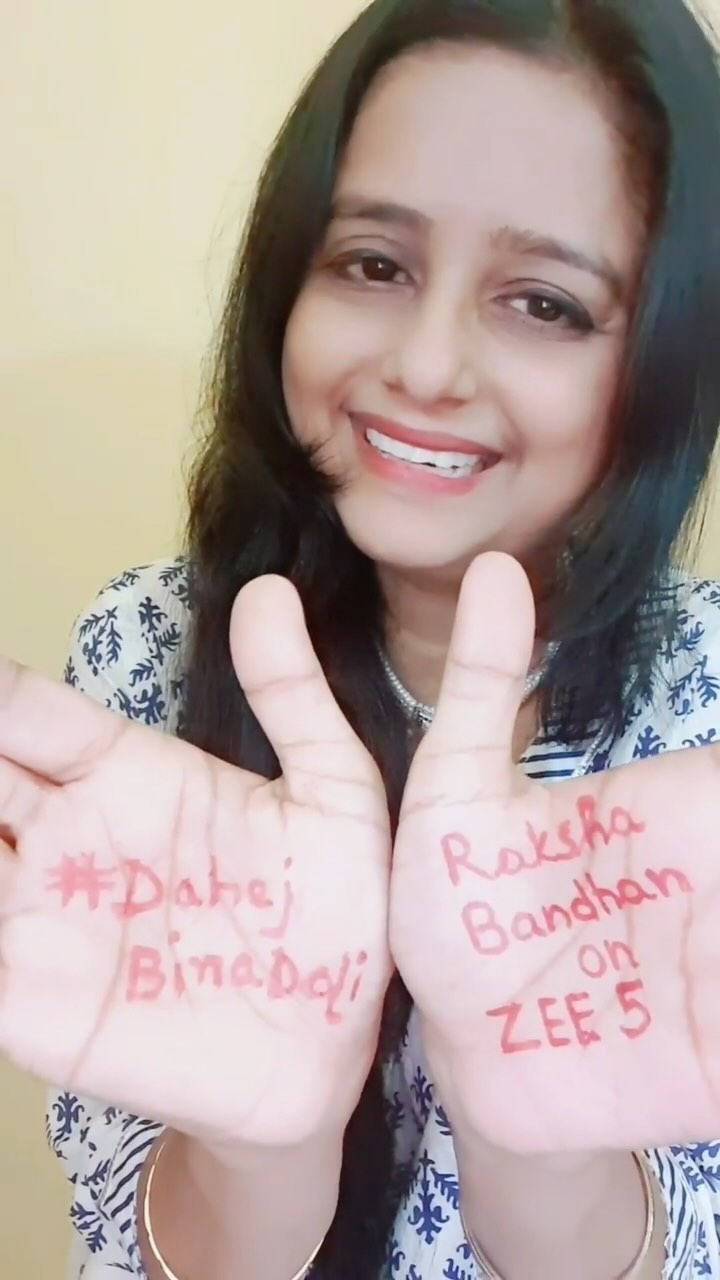 #Dahej
BinaDoli
Raksha
Bandhan
on
ZEE 5